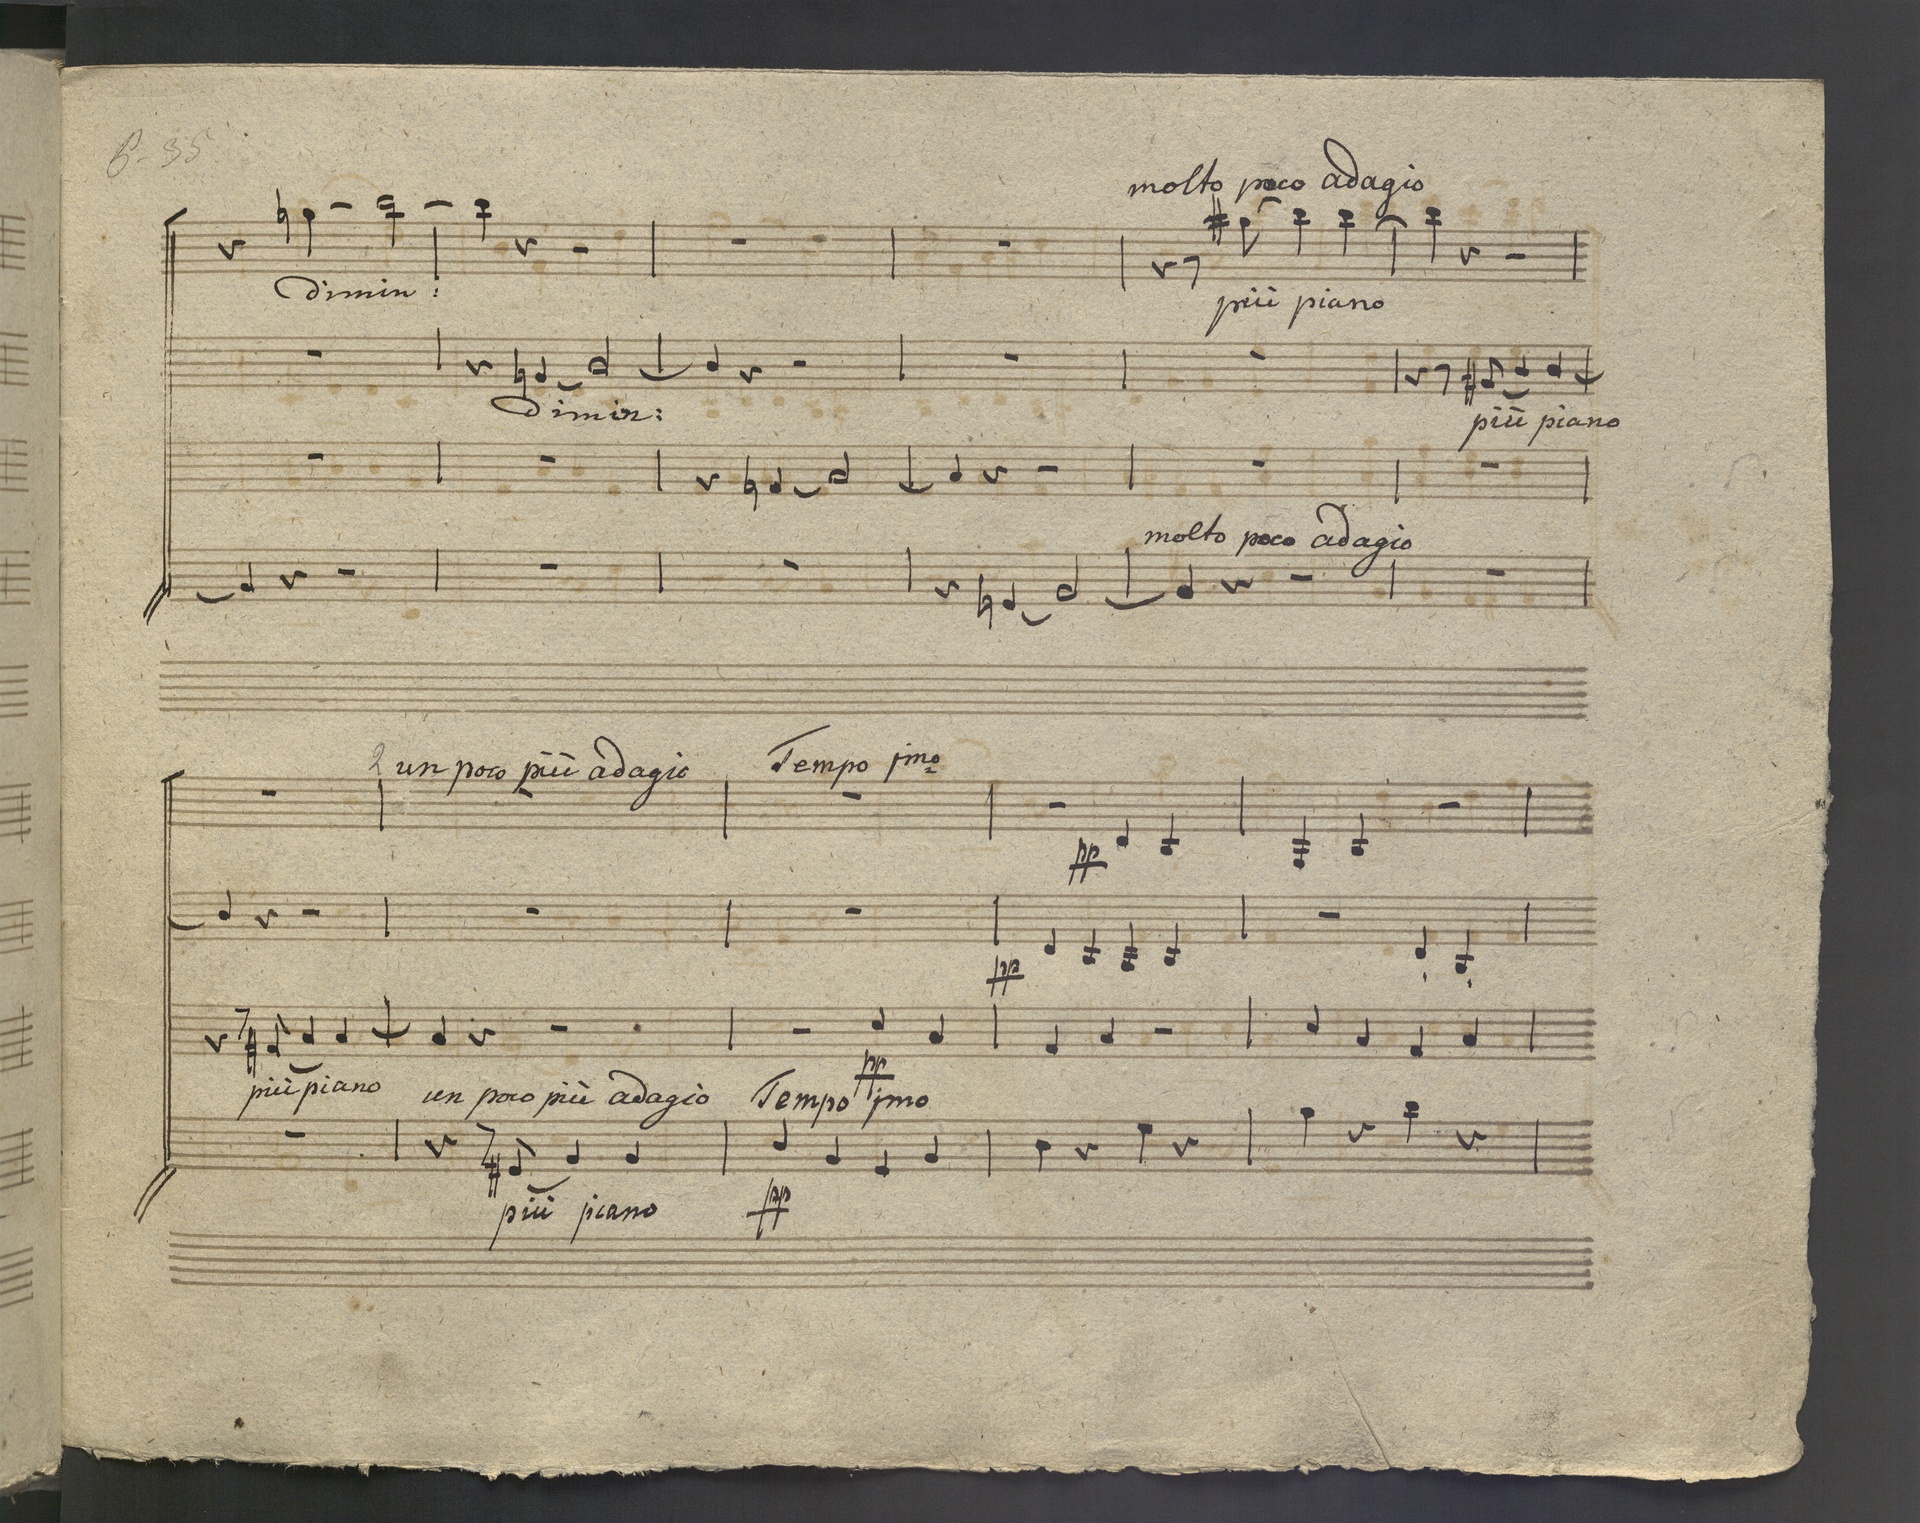 molto poco adagio
dimin:
più piano
dimin:
più piano
molto poco adagio
2 un poco più adagio Tempo imo
pp
pp
pp
più piano un poco più adagio Tempo imo
più piano pp